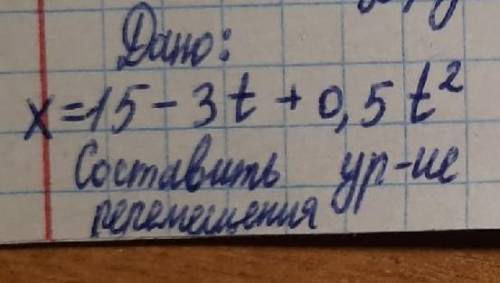 Дано:
x=15-3t+0,5t²
Составить ур-ие
перемещения